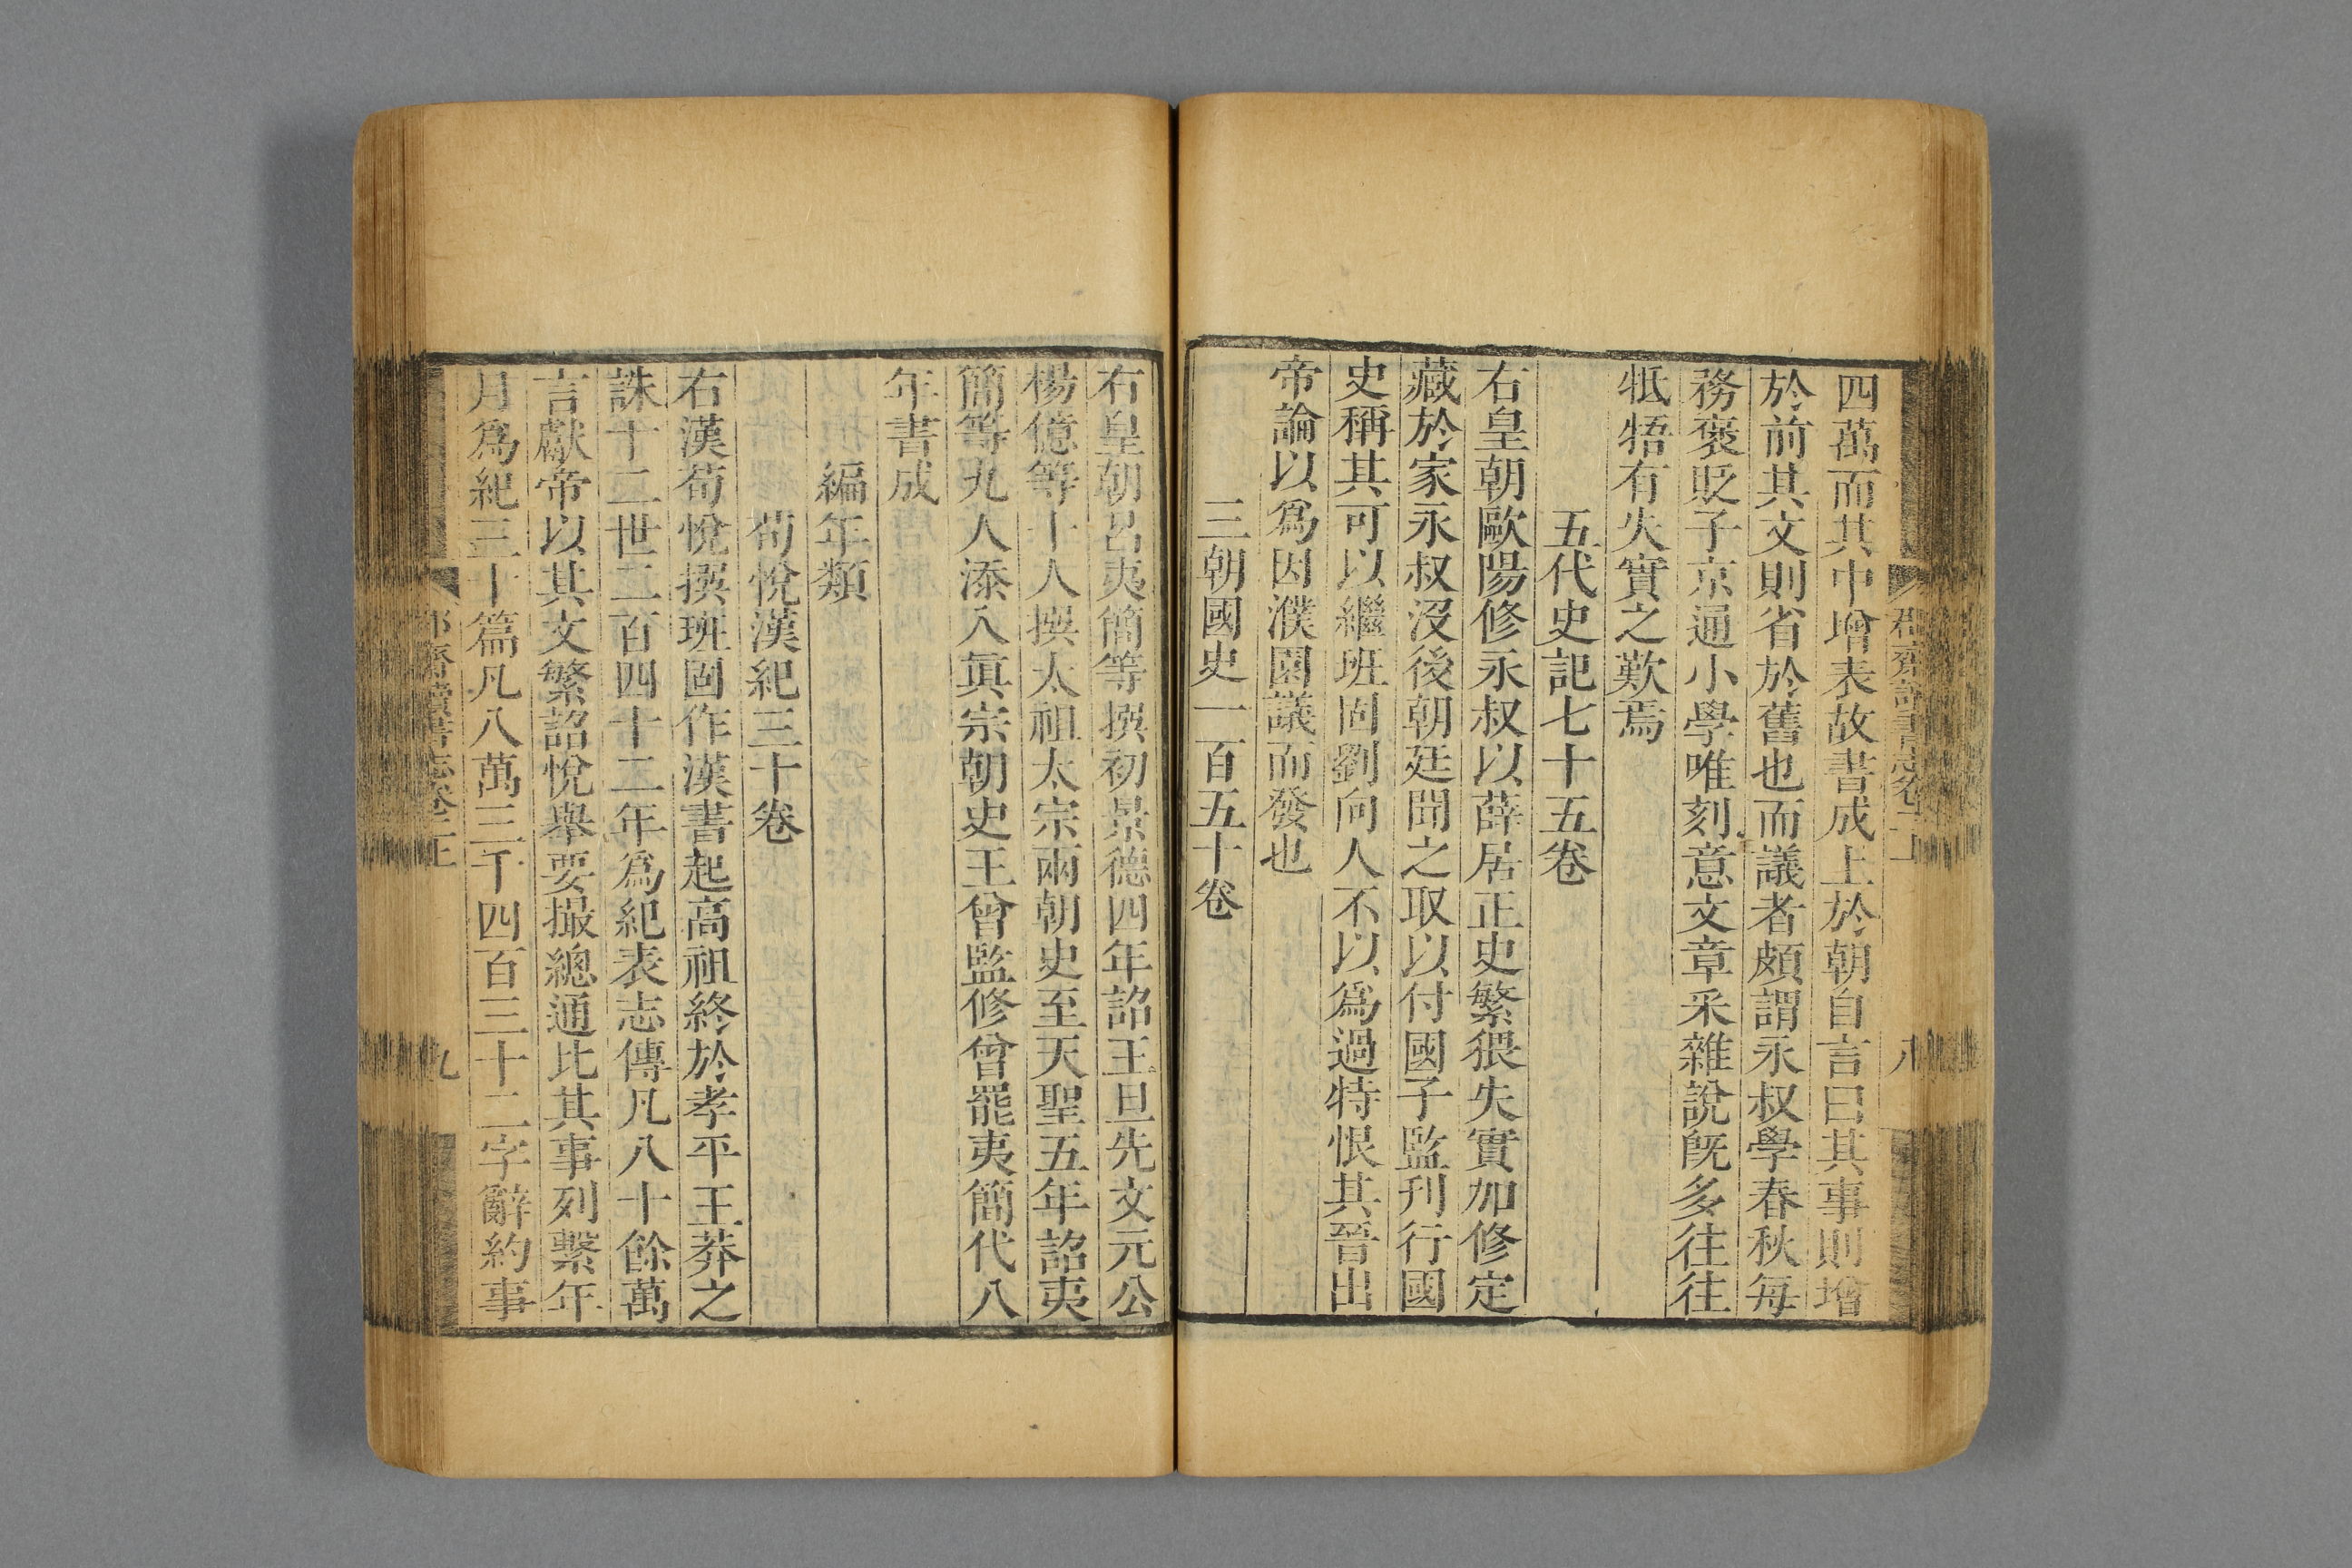 四萬而其中增表故書成上於朝自言曰其事則增
於前其文則省於舊也而議者頗謂永叔學春秋每
務褒貶子京通小學唯刻意文章采雜說旣多往往
牴牾有失實之歎焉
五代史記七十五卷
右皇朝歐陽修永叔以薛居正史繁猥失實加修定
藏於家永叔沒後朝廷聞之取以付國子監刊行國
史稱其可以繼班固劉向人不以爲過特恨其晉出
帝論以爲因濮園議而發也
三朝國史一百五十卷
右皇朝呂夷簡等撰初景德四年詔王旦先文元公
楊億等十人撰太祖太宗兩朝史至天聖五年詔夷
簡等九人添入眞宗朝史王曾監修曾罷夷簡代八
年書成
編年類
荀悅漢紀三十卷
右漢荀悅撰班固作漢書起高祖終於孝平王莽之
誅十二世二百四十二年爲紀表志傳凡八十餘萬
言獻帝以其文繁詔悅舉要撮總通比其事列繫年
月爲紀三十篇凡八萬三千四百三十二字辭約事
九